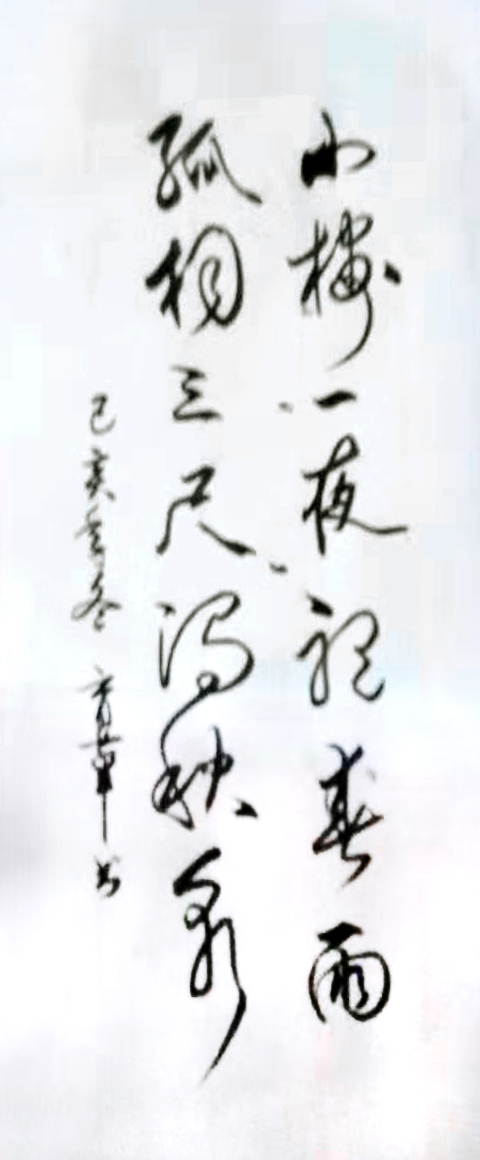 小楼一夜听春雨
孤桐三尺泻秋泉
己亥年冬 青草书